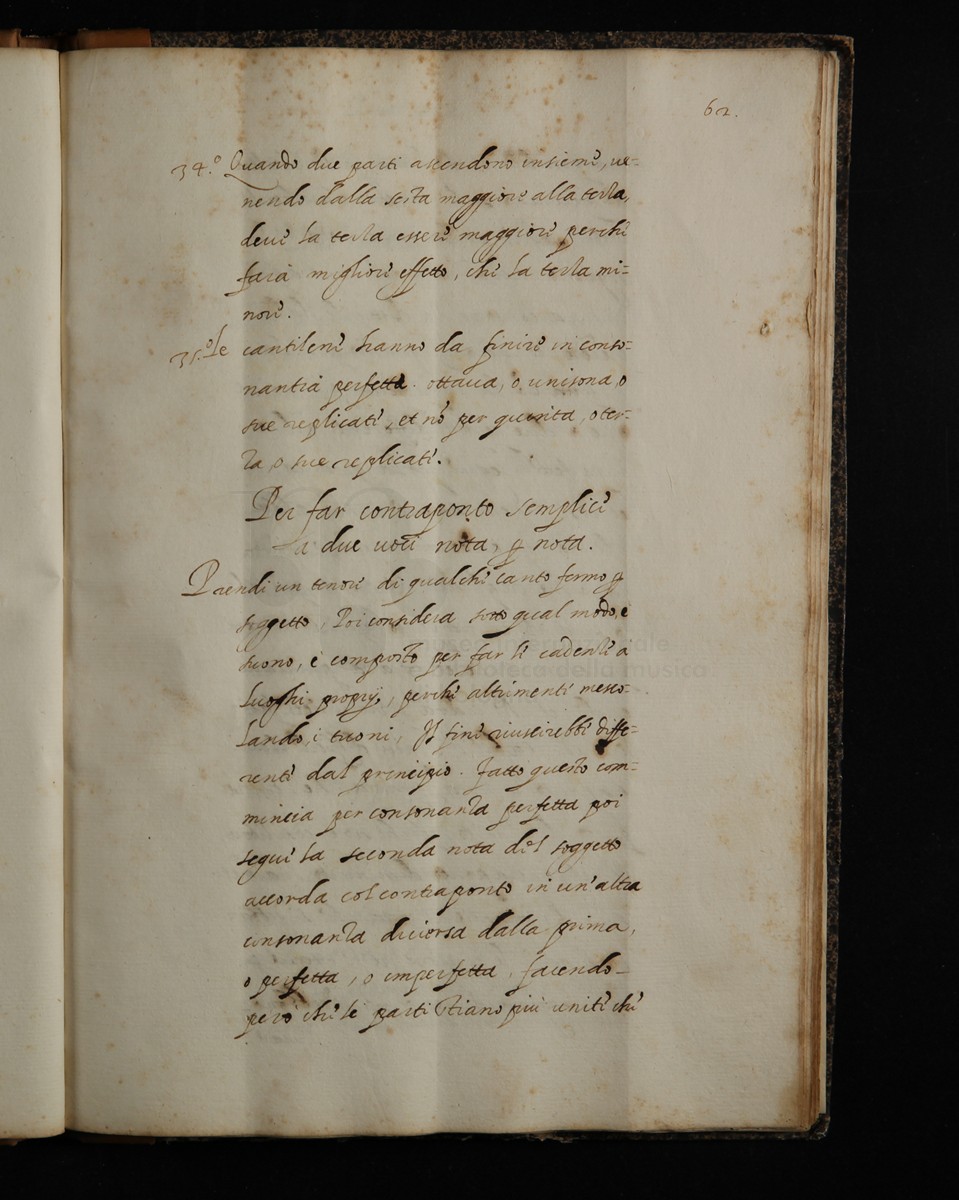 62.
34.º Quando due parti ascendono insieme, ue=
nendo dalla sesta maggiore alla terza,
deue la terza essere maggiore perche
farà migliore effetto, che la terza mi=
nore.
35.º Le cantilene hanno da finire in conso=
nantia perfetta. ottaua, o unisona, o
sue replicati, et nõ per quinta, o ter=
za, o sue replicati.
Per far contraponto semplice
a due uoci nota, p nota.
Prendi un tenore di qualche canto fermo p
soggetto, Poi considera sotto qual modo, e
suono, è composto per far le cadentie a
luoghi proprij, perche altrimenti mesco=
lando, i tuoni, Il fine riuscirebbe diffe=
rente dal principio. fatto questo com=
mincia per consonanza perfetta poi
segue la seconda nota del soggetto
accorda col contraponto in un'altra
consonanza diuersa dalla prima,
o perfetta, o imperfetta, facendo
però che le parti stiano più unite che